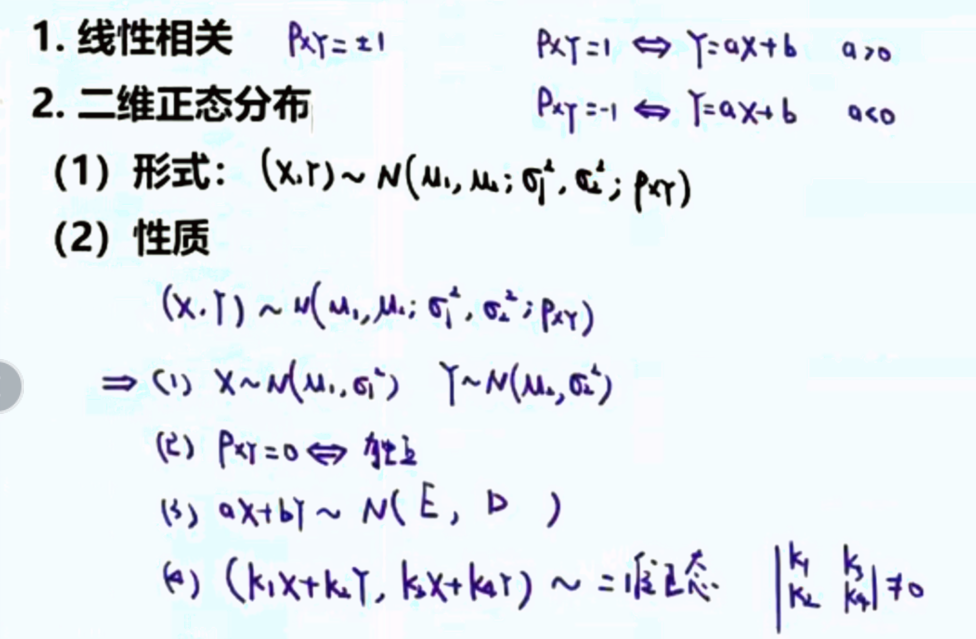 1. 线性相关 ρXY=±1 ρXY=1 ⇔ Y=aX+b a>0
2. 二维正态分布 ρXY=-1 ⇔ Y=aX+b a<0
（1）形式：(X.Y)~N(μ₁,μ₂;σ₁²,σ₂²;ρXY)
（2）性质
(X.Y)~N(μ₁,μ₂;σ₁²,σ₂²;ρXY)
⇒ (1) X~N(μ₁,σ₁²) Y~N(μ₂,σ₂²)
(2) ρXY=0 ⇔ 独立
(3) aX+bY~N(E, D )
(4) (k₁X+k₂Y, k₃X+k₄Y)~二维正态 |k₁ k₃
k₂ k₄|≠0